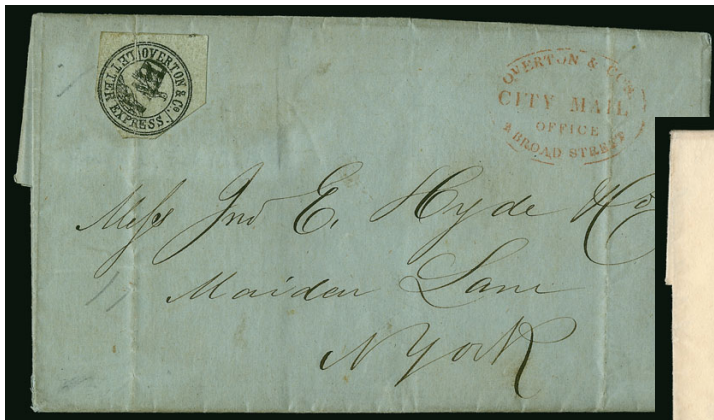 OVERTON & Co
LETTER EXPRESS.
OVERTON & CO'S
CITY MAIL
OFFICE
2 BROAD STREET
Mess Jno E. Hyde & Co
Maiden Lane
N York